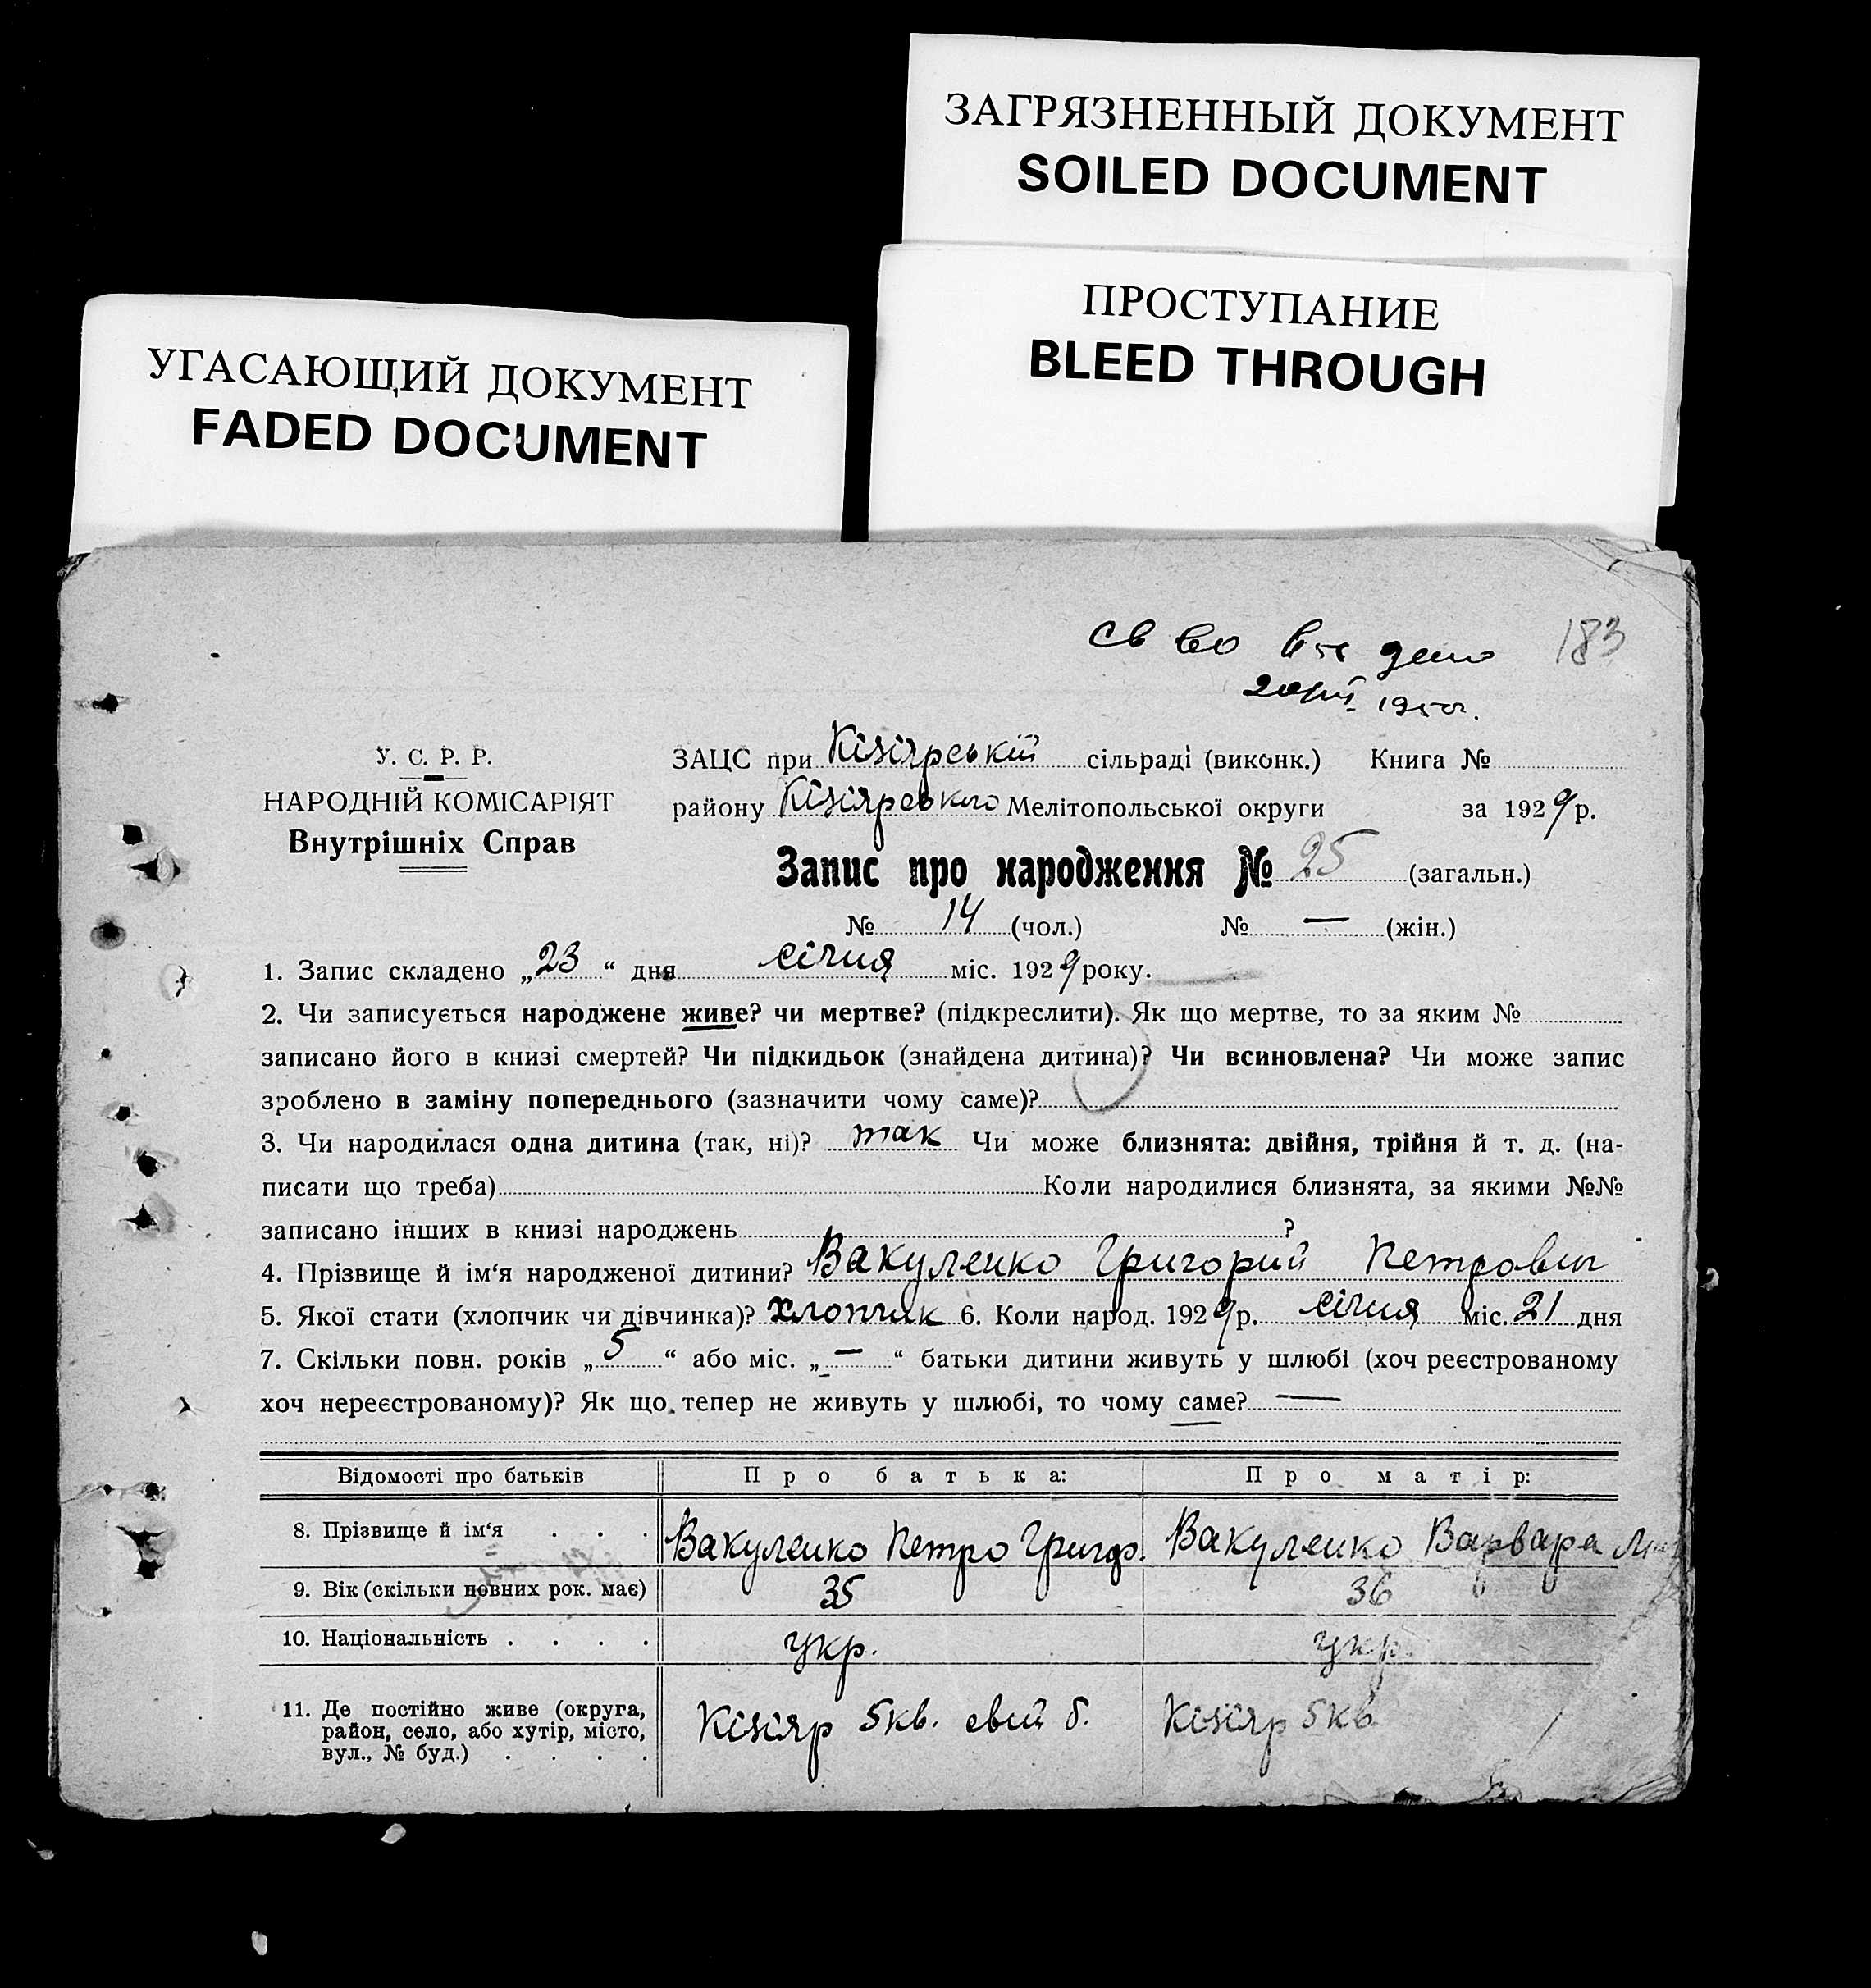 ЗАГРЯЗНЕННЫЙ ДОКУМЕНТ
SOILED DOCUMENT
ПРОСТУПАНИЕ
BLEED THROUGH
УГАСАЮЩИЙ ДОКУМЕНТ
FADED DOCUMENT
183
1950г.
У. С. Р. Р.
НАРОДНІЙ КОМІСАРІЯТ
Внутрішніх Справ
ЗАЦС при Кізіярській сільраді (виконк.) Книга №
району Кізіярського Мелітопольської округи за 1929 р.
Запис про народження № 25 (загальн.)
№ 14 (чол.) № — (жін.)
1. Запис складено „23“ дня січня міс. 1929 року.
2. Чи записується народжене живе? чи мертве? (підкреслити). Як що мертве, то за яким №
записано його в книзі смертей? Чи підкидьок (знайдена дитина)? Чи всиновлена? Чи може запис
зроблено в заміну попереднього (зазначити чому саме)?
3. Чи народилася одна дитина (так, ні)? так Чи може близнята: двійня, трійня й т. д. (на-
писати що треба) Коли народилися близнята, за якими №№
записано інших в книзі народжень ?
4. Прізвище й ім‘я народженої дитини? Вакуленко Григорий Петрович
5. Якої стати (хлопчик чи дівчинка)? хлопчик 6. Коли народ. 1929 р. січня міс. 21 дня
7. Скільки повн. років „5“ або міс. „—“ батьки дитини живуть у шлюбі (хоч реєстрованому
хоч нереєстрованому)? Як що тепер не живуть у шлюбі, то чому саме? —
Відомості про батьків Про батька: Про матір:
8. Прізвище й ім‘я . . . Вакуленко Петро Григор. Вакуленко Варвара
9. Вік (скільки повних рок. має) 35 36
10. Національність . . . . укр. укр.
11. Де постійно живе (округа,
район, село, або хутір, місто,
вул., № буд.) . . . . Кізіяр 5кв. свій б. Кізіяр 5кв